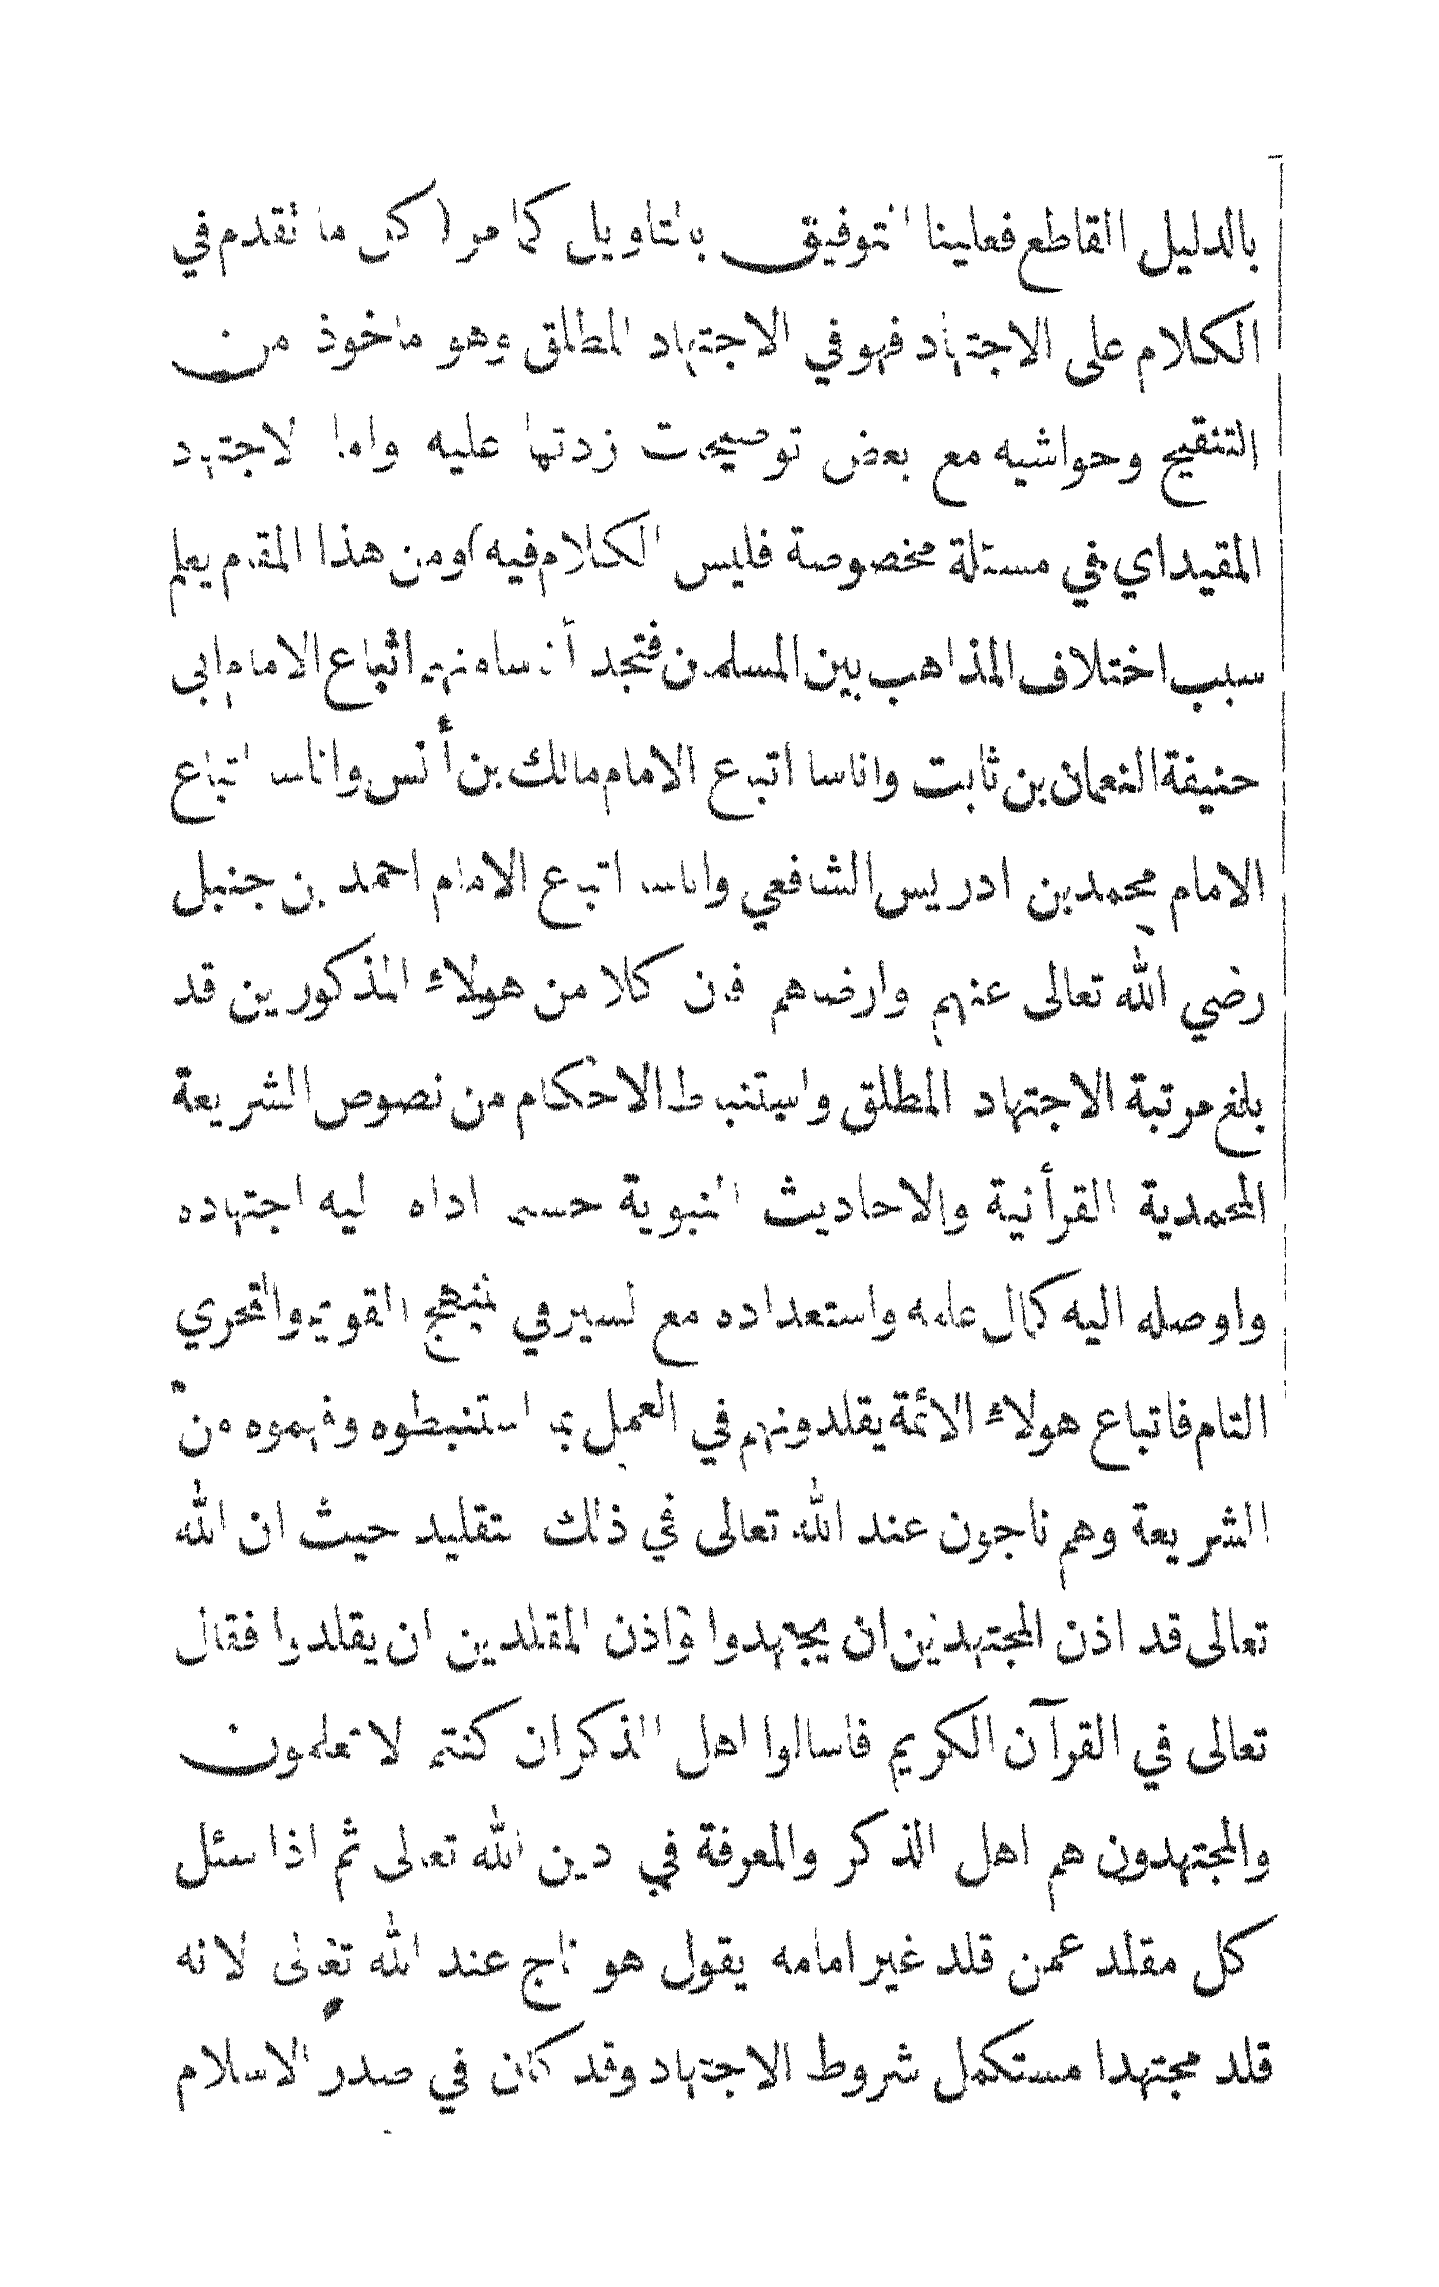 بالدليل القاطع فعلينا التوفيق بالتاويل كما مر ( كل ما تقدم في
الكلام على الاجتهاد فهو في الاجتهاد المطلق وهو ماخوذ من
التنقيح وحواشيه مع بعض توضيحات زدتها عليه واما الاجتهاد
المقيد اي في مسئلة مخصوصة فليس الكلام فيه ) ومن هذا المقام يعلم
سبب اختلاف المذاهب بين المسلمين فتجد أناسا منهم اتباع الامام ابي
حنيفة النعمان بن ثابت واناسا اتباع الامام مالك بن أنس واناسا اتباع
الامام محمد بن ادريس الشافعي واناسا اتباع الامام احمد بن حنبل
رضي الله تعالى عنهم وارضاهم فان كلا من هولاء المذكورين قد
بلغ مرتبة الاجتهاد المطلق واستنباط الاحكام من نصوص الشريعة
المحمدية القرأنية والاحاديث النبوية حسبما اداه اليه اجتهاده
واوصله اليه كمال علمه واستعداده مع السير في المنهج القويم والتحري
التام فاتباع هولاء الائمة يقلدونهم في العمل بما استنبطوه وفهموه من
الشريعة وهم ناجون عند الله تعالى في ذلك التقليد حيث ان الله
تعالى قد اذن المجتهدين ان يجتهدوا واذن المقلدين ان يقلدوا فقال
تعالى في القرآن الكريم فاسالوا اهل الذكر ان كنتم لا تعلمون
والمجتهدون هم اهل الذكر والمعرفة في دين الله تعالى ثم اذا سئل
كل مقلد عمن قلد غير امامه يقول هو ناج عند الله تعالى لانه
قلد مجتهدا مستكمل شروط الاجتهاد وقد كان في صدر الاسلام